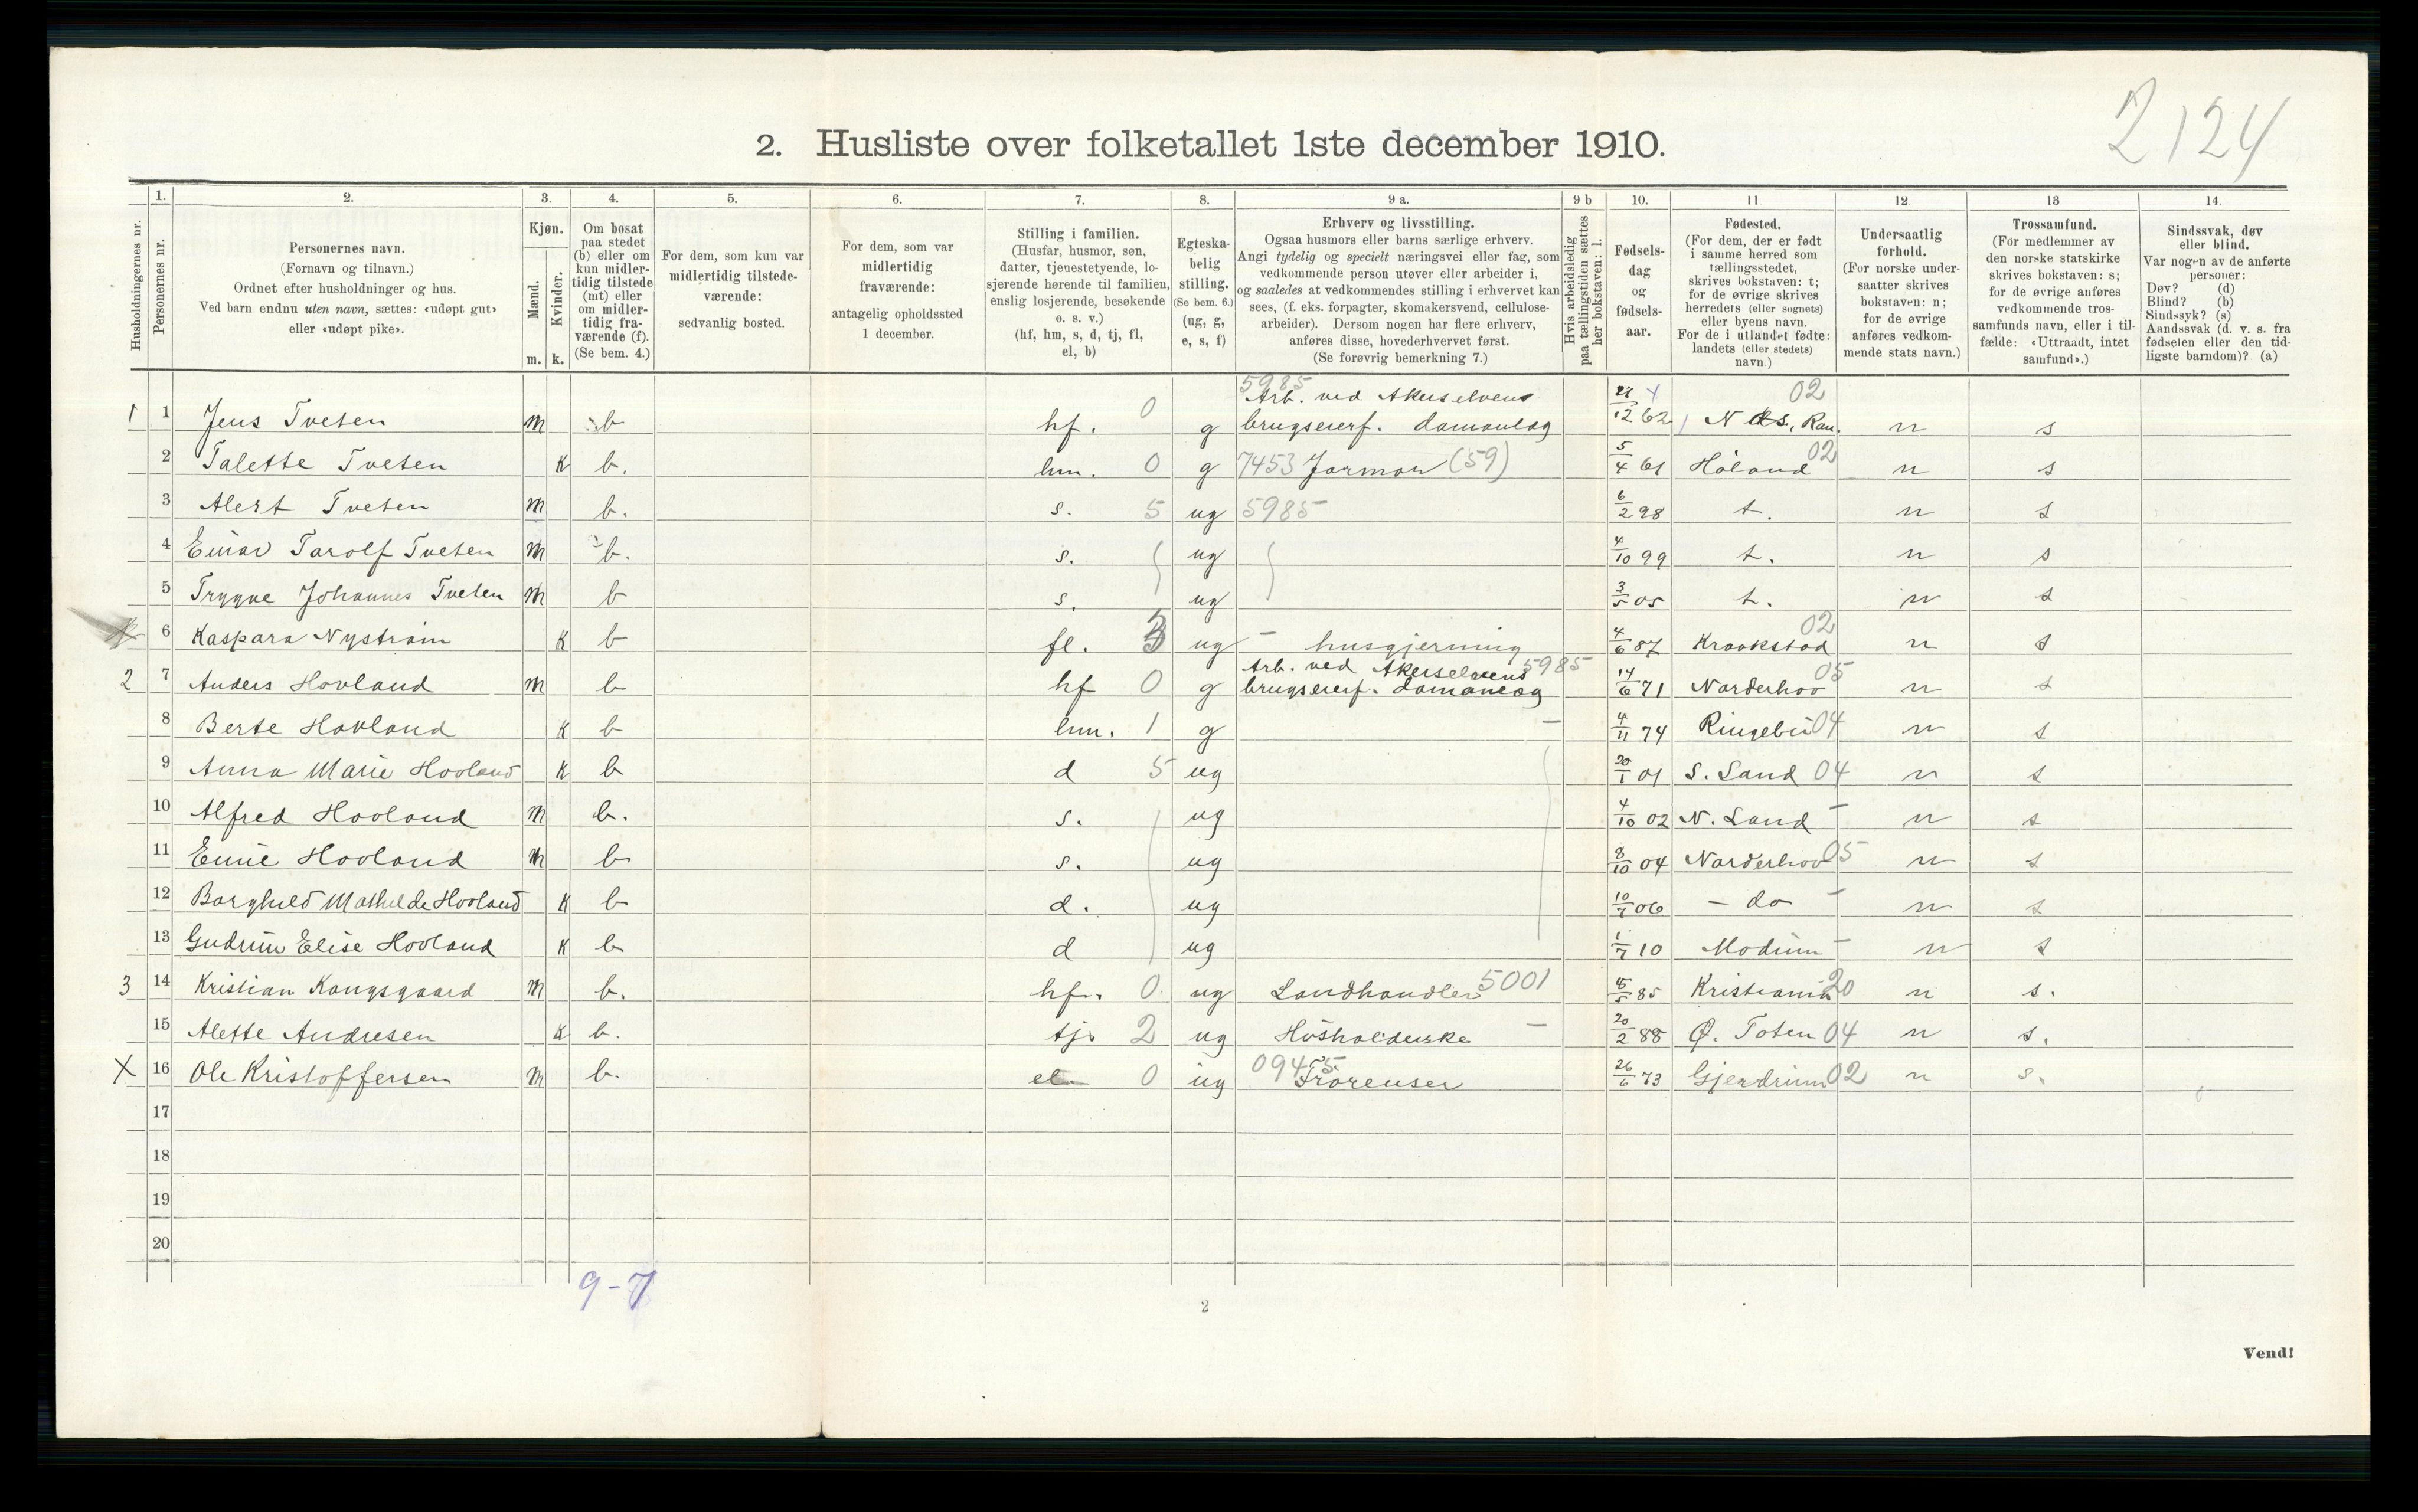 2124
2. Husliste over folketallet 1ste december 1910.
1. 2. 3. 4. 5. 6. 7. 8. 9 a. 9 b 10. 11 12. 13 14.
Husholdningernes nr.
Personernes nr.
Personernes navn.
(Fornavn og tilnavn.)
Ordnet efter husholdninger og hus.
Ved barn endnu uten navn, sættes: «udøpt gut»
eller «udøpt pike».
Kjøn.
Mænd.
Kvinder.
m. k.
Om bosat
paa stedet
(b) eller om
kun midler-
tidig tilstede
(mt) eller
om midler-
tidig fra-
værende (f).
(Se bem. 4.)
For dem, som kun var
midlertidig tilstede-
værende:
sedvanlig bosted.
For dem, som var
midlertidig
fraværende:
antagelig opholdssted
1 december.
Stilling i familien.
(Husfar, husmor, søn,
datter, tjenestetyende, lo-
sjerende hørende til familien,
enslig losjerende, besøkende
o. s. v.)
(hf, hm, s, d, tj, fl,
el, b)
Egteska-
belig
stilling.
(Se bem. 6.)
(ug, g,
e, s, f)
Erhverv og livsstilling.
Ogsaa husmors eller barns særlige erhverv.
Angi tydelig og specielt næringsvei eller fag, som
vedkommende person utøver eller arbeider i,
og saaledes at vedkommendes stilling i erhvervet kan
sees, (f. eks. forpagter, skomakersvend, cellulose-
arbeider). Dersom nogen har flere erhverv,
anføres disse, hovederhvervet først.
(Se forøvrig bemerkning 7.)
Hvis arbeidsledig
paa tællingstiden sættes
her bokstaven: l.
Fødsels-
dag
og
fødsels-
aar.
Fødested.
(For dem, der er født
i samme herred som
tællingsstedet,
skrives bokstaven: t;
for de øvrige skrives
herredets (eller sognets)
eller byens navn.
For de i utlandet fødte:
landets (eller stedets)
navn.)
Undersaatlig
forhold.
(For norske under-
saatter skrives
bokstaven: n;
for de øvrige
anføres vedkom-
mende stats navn.)
Trossamfund.
(For medlemmer av
den norske statskirke
skrives bokstaven: s;
for de øvrige anføres
vedkommende tros-
samfunds navn, eller i til-
fælde: «Uttraadt, intet
samfund».)
Sindssvak, døv
eller blind.
Var nogen av de anførte
personer:
Døv? (d)
Blind? (b)
Sindssyk? (s)
Aandssvak (d. v. s. fra
fødselen eller den tid-
ligste barndom)? (a)
5985 Arb. ved Akerselvens 02
1 1 Jens Tveten m b hf. 0 g brugseierf. damanlæg 12 62 n s
2 Talette Tveten k b. hm. 0 g 7453 Jormor (59) 5/4 61 Høland 02 n s
3 Alert Tveten m b. s. 5 ug 5985 6/2 98 t. n s
4 Einar Tarolf Tveten m b. s. ug 4/10 99 t. n s
5 Trygve Johannes Tveten m b s. ug 3/5 05 t. n s
X 6 Kaspara Nystrøm k b fl. 3 ug - husgjerning 4/6 87 Kraakstad 02 n s
Arb. ved Akerselvens 5985
2 7 Anders Hovland m b hf 0 g brugseierf. damanlæg 14/6 71 Norderhov 05 n s
8 Berte Hovland k b hm. 1 g - 4/11 74 Ringebu 04 n s
9 Anna Marie Hovland k b d 5 ug 20/1 01 S. Land 04 n s
10 Alfred Hovland m b. s. ug 4/10 02 N. Land - n s
11 Hovland m b s. ug 8/10 04 Norderhov 05 n s
12 Borghild Mathilde Hovland k b d. ug 10/7 06 - do - n s
13 Gudrun Elise Hovland k b d ug 1/7 10 Modum - n s
3 14 Kristian Kongsgaard m b. hf. 0 ug Landhandler 5001 /5 85 Kristiania 20 n s.
15 Alette Andresen k b. tj. 2 ug Husholderske - 20/2 88 Ø. Toten 04 n s.
X 16 Ole Kristoffersen m b. el 0 ug 0945 Frørenser 26/6 73 Gjerdrum 02 n s.
17
18
19
20
9-7
2
Vend!